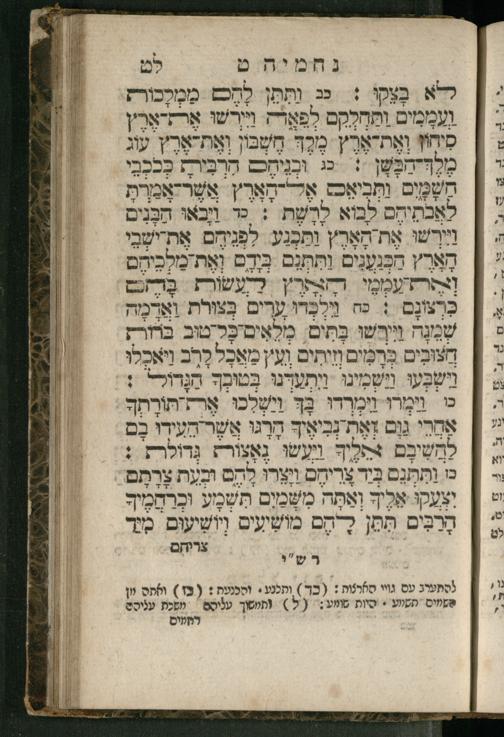 נחמיה ט לט
לא בצקו : כב וַתִּתֵּן לָהֶם מַמְלָכוֹת
וַעֲמָמִים וַתַּחְלְקֵם לְפֵאָה וַיִּירְשׁוּ אֶת־אֶרֶץ
סִיחוֹן וְאֶת־אֶרֶץ מֶלֶךְ חֶשְׁבּוֹן וְאֶת־אֶרֶץ עוֹג
מֶלֶךְ־הַבָּשָׁן : כג וּבְנֵיהֶם הִרְבִּיתָ כְּכֹכְבֵי
הַשָּׁמָיִם וַתְּבִיאֵם אֶל־הָאָרֶץ אֲשֶׁר־אָמַרְתָּ
לַאֲבֹתֵיהֶם לָבוֹא לָרָשֶׁת : כד וַיָּבֹאוּ הַבָּנִים
וַיִּירְשׁוּ אֶת־הָאָרֶץ וַתַּכְנַע לִפְנֵיהֶם אֶת־יֹשְׁבֵי
הָאָרֶץ הַכְּנַעֲנִים וַתִּתְּנֵם בְּיָדָם וְאֶת־מַלְכֵיהֶם
וְאֶת־עַמְמֵי הָאָרֶץ לַעֲשׂוֹת בָּהֶם
כִּרְצוֹנָם : כה וַיִּלְכְּדוּ עָרִים בְּצוּרֹת וַאֲדָמָה
שְׁמֵנָה וַיִּירְשׁוּ בָּתִּים מְלֵאִים־כָּל־טוּב בֹּרוֹת
חֲצוּבִים כְּרָמִים וְזֵיתִים וְעֵץ מַאֲכָל לָרֹב וַיֹּאכְלוּ
וַיִּשְׂבְּעוּ וַיַּשְׁמִינוּ וַיִּתְעַדְּנוּ בְּטוּבְךָ הַגָּדוֹל :
כו וַיַּמְרוּ וַיִּמְרְדוּ בָּךְ וַיַּשְׁלִכוּ אֶת־תּוֹרָתְךָ
אַחֲרֵי גַוָּם וְאֶת־נְבִיאֶיךָ הָרָגוּ אֲשֶׁר־הֵעִידוּ בָם
לַהֲשִׁיבָם אֵלֶיךָ וַיַּעֲשׂוּ נֶאָצוֹת גְּדוֹלֹת :
כז וַתִּתְּנֵם בְּיַד צָרֵיהֶם וַיָּצֵרוּ לָהֶם וּבְעֵת צָרָתָם
יִצְעֲקוּ אֵלֶיךָ וְאַתָּה מִשָּׁמַיִם תִּשְׁמָע וּכְרַחֲמֶיךָ
הָרַבִּים תִּתֵּן לָהֶם מוֹשִׁיעִים וְיוֹשִׁיעוּם מִיַּד
צריהם
רש״י
להתערב עם גויי הארצות : (כד) ותכנע · והכנעת : (כז) ואתה מן
השמים תשמע · היות שומע : (ל) ותמשוך עליהם משכת עליהם
רחמים